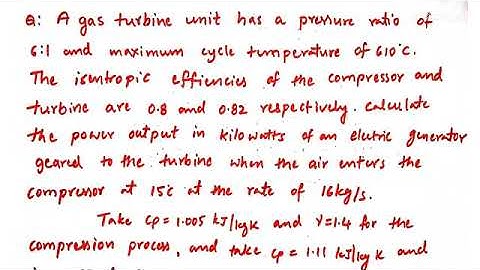 Q: A gas turbine unit has a pressure ratio of
6:1 and maximum cycle temperature of 610°C.
The isentropic effiencies of the compressor and
turbine are 0.8 and 0.82 respectively. Calculate
the power output in kilowatts of an electric generator
geared to the turbine when the air enters the
compressor at 15°C at the rate of 16kg/s.
Take Cp = 1.005 kJ/kgK and γ=1.4 for the
compression process, and take Cp = 1.11 kJ/kg K and